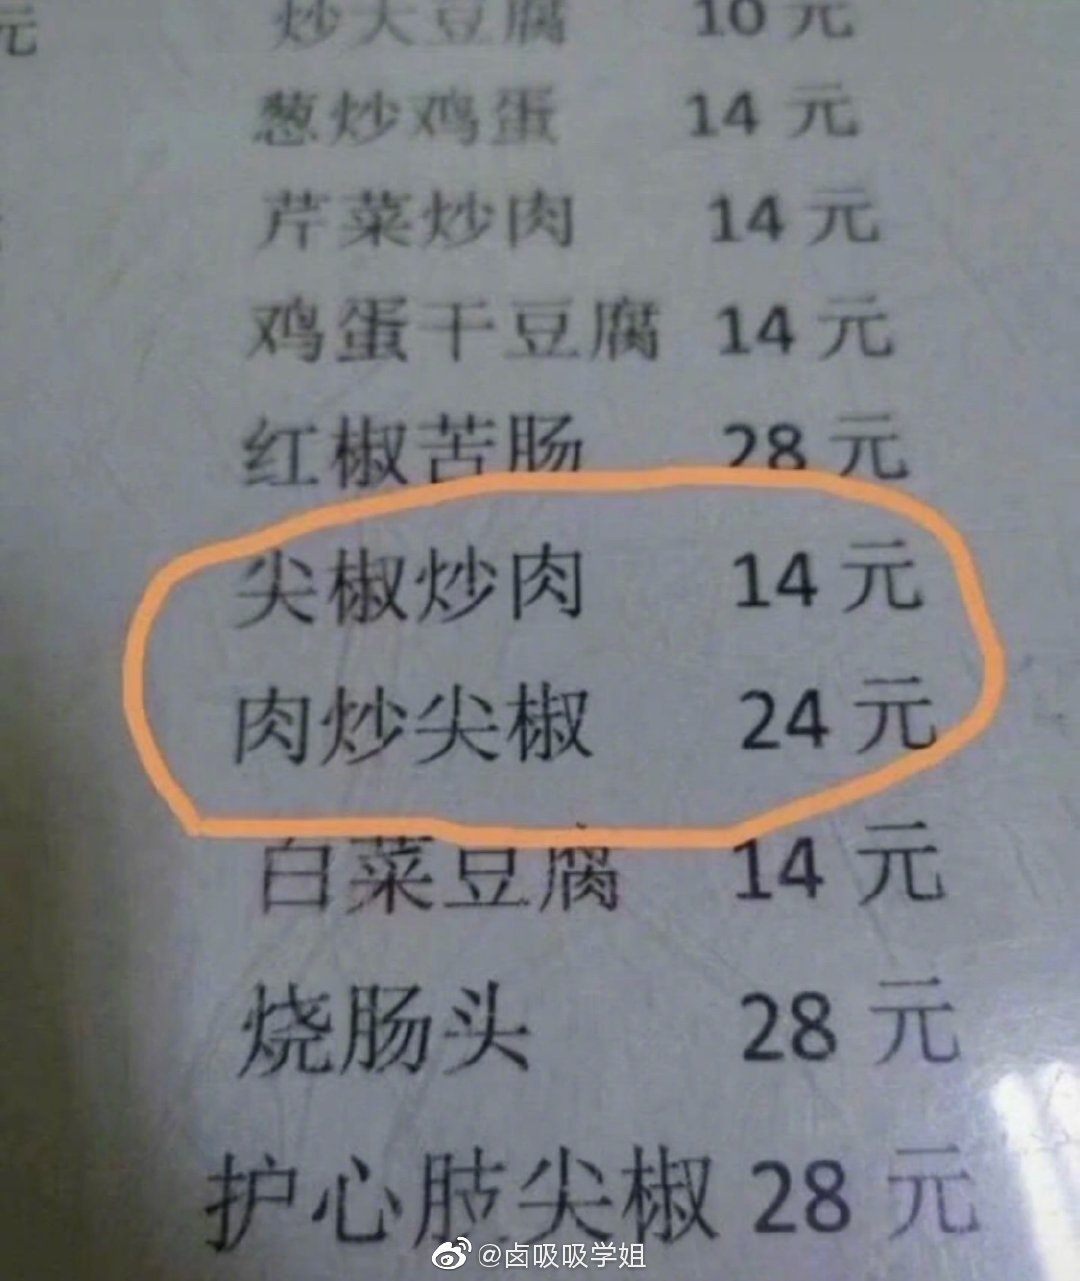 元
炒大豆腐 10元
葱炒鸡蛋 14元
芹菜炒肉 14元
鸡蛋干豆腐 14元
红椒苦肠 28元
尖椒炒肉 14元
肉炒尖椒 24元
白菜豆腐 14元
烧肠头 28元
护心肢尖椒 28元
@卤吸吸学姐